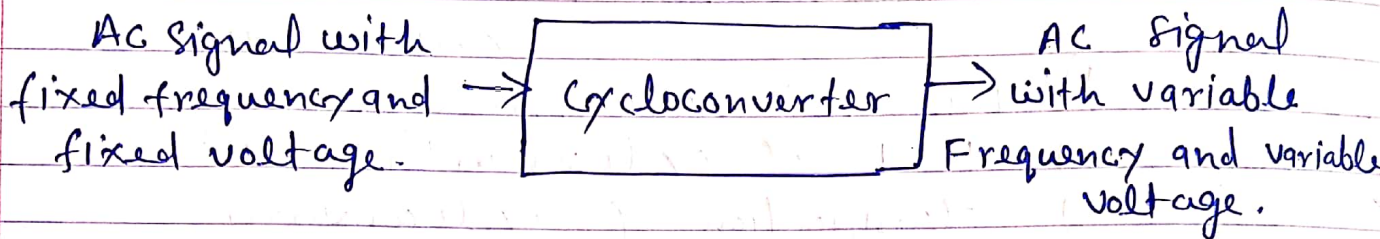 AC Signal with
fixed frequency and
fixed voltage.
Cycloconverter
AC Signal
with variable
Frequency and variable
voltage.